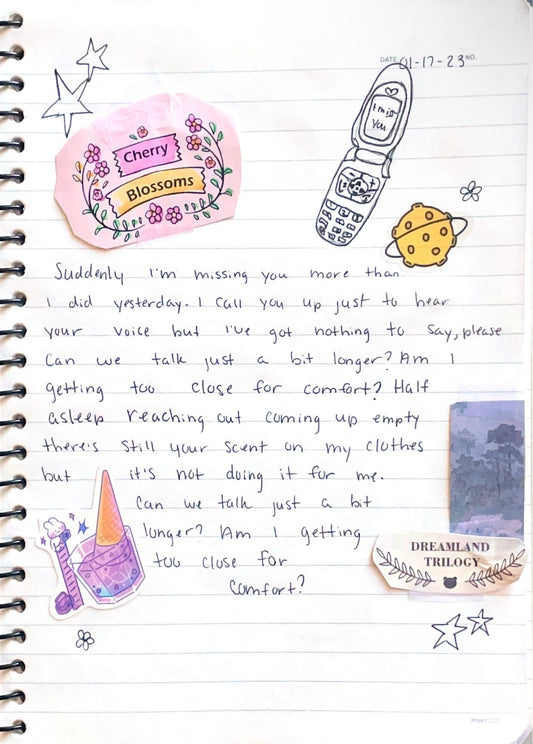 DATE 01-17-23 NO.
I miss
You
Cherry
Blossoms
Suddenly I'm missing you more than
I did yesterday. I call you up just to hear
your voice but I've got nothing to say, please
Can we talk just a bit longer? Am I
getting too close for comfort? Half
asleep reaching out coming up empty
there's still your scent on my clothes
but it's not doing it for me.
Can we talk just a bit
longer? Am I getting
too close for
comfort?
DREAMLAND
TRILOGY